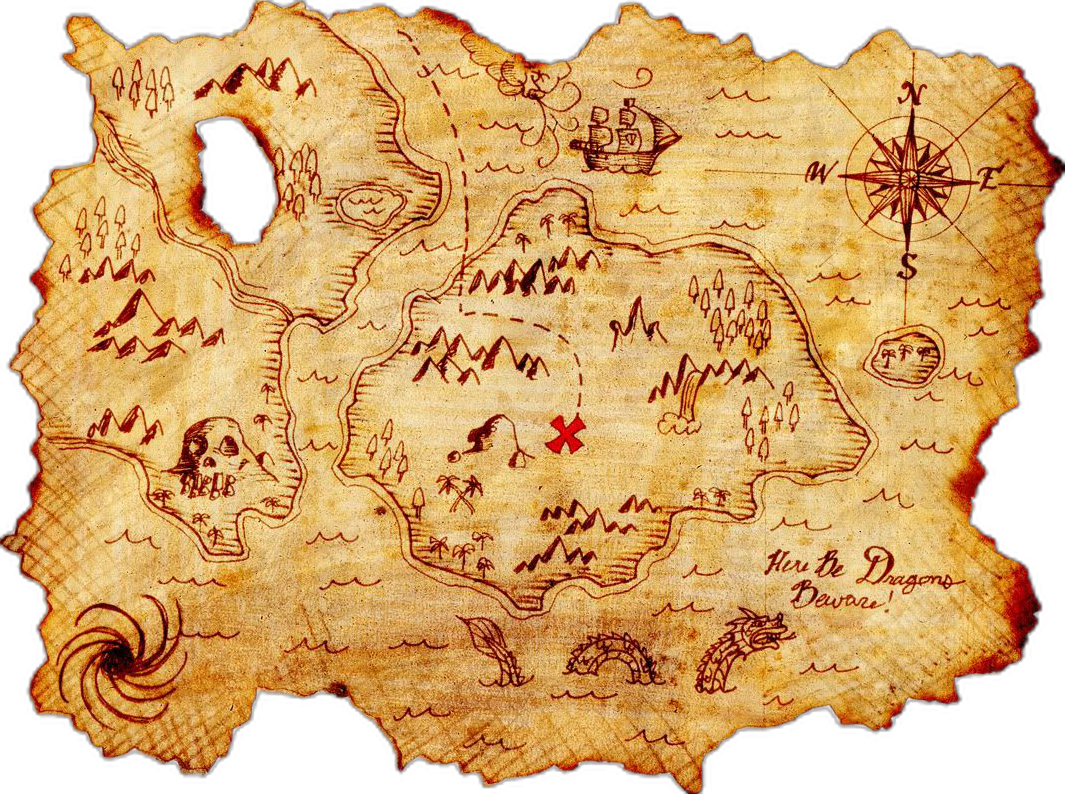 N
W
E
S
Here Be Dragons
Beware!